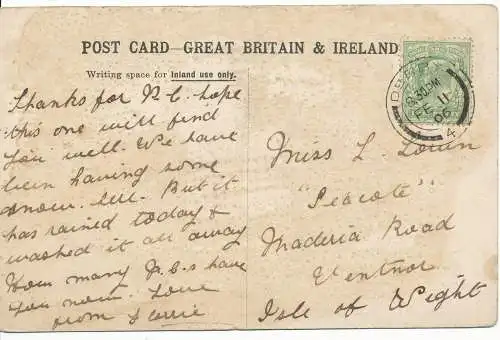 POST CARD—GREAT BRITAIN & IRELAND
Writing space for Inland use only.
Thanks for P.C. hope
this one will find
you well. We have
been having some
snow. But it
has rained today &
washed it all away
How many P.C.s have
you now. Love
from
8.30 PM
FE 11
06
4
Miss L.
"Seacote"
Maderia Road
Ventnor
Isle of Wight